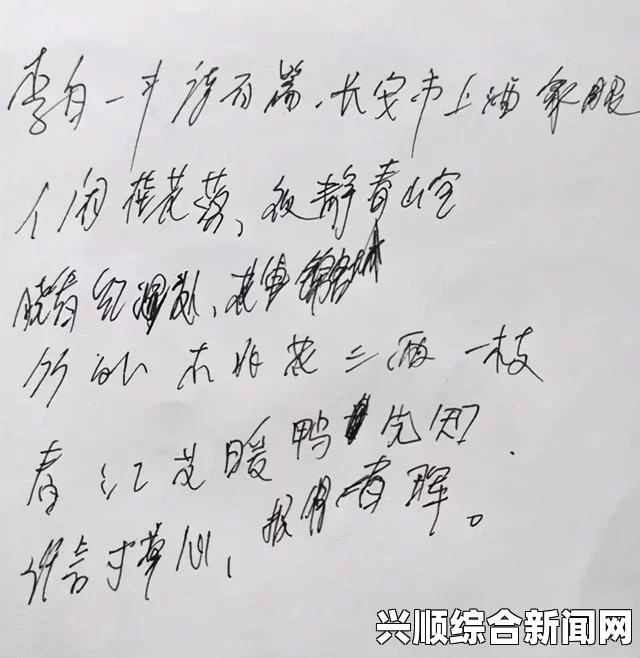 李白一斗诗百篇、长安市上酒家眠
人闲桂花落,夜静春山空
晓看红湿处,花重锦官城
竹 外 桃 花 三 两 一枝
春 江 水 暖 鸭 先 知.
谁言寸草心,报得春晖。
兴顺综合新闻网